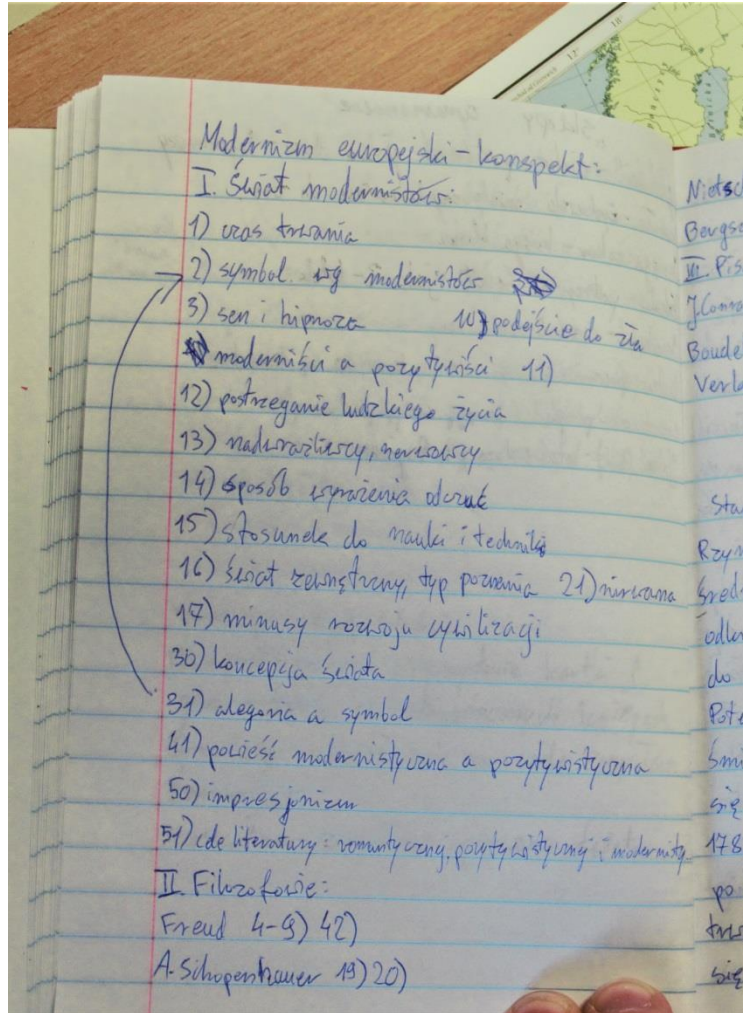 Modernizm europejski - konspekt:
I. Świat modernistów:
1) czas trwania
2) symbol wg modernistów
3) sen i hipnoza 10) podejście do zła
moderniści a pozytywiści 11)
12) postrzeganie ludzkiego życia
13) nadwrażliwcy, nerwowcy
14) sposób wyrażenia odczuć
15) stosunek do nauki i techniki
16) świat zewnętrzny, typ poznania 21) nirwana
17) minusy rozwoju cywilizacji
30) koncepcja świata
31) alegoria a symbol
41) powieść modernistyczna a pozytywistyczna
50) impresjonizm
51) cele literatury: romantycznej, pozytywistycznej i modernisty.
II. Filozofowie:
Freud 4-9) 42)
A. Schopenhauer 19) 20)
Nietsc
Bergso
III. Pis
J. Conra
Baude
Verla
Sta
Rzym
śred
odle
do
Pote
śmi
się
178
po
trw
się